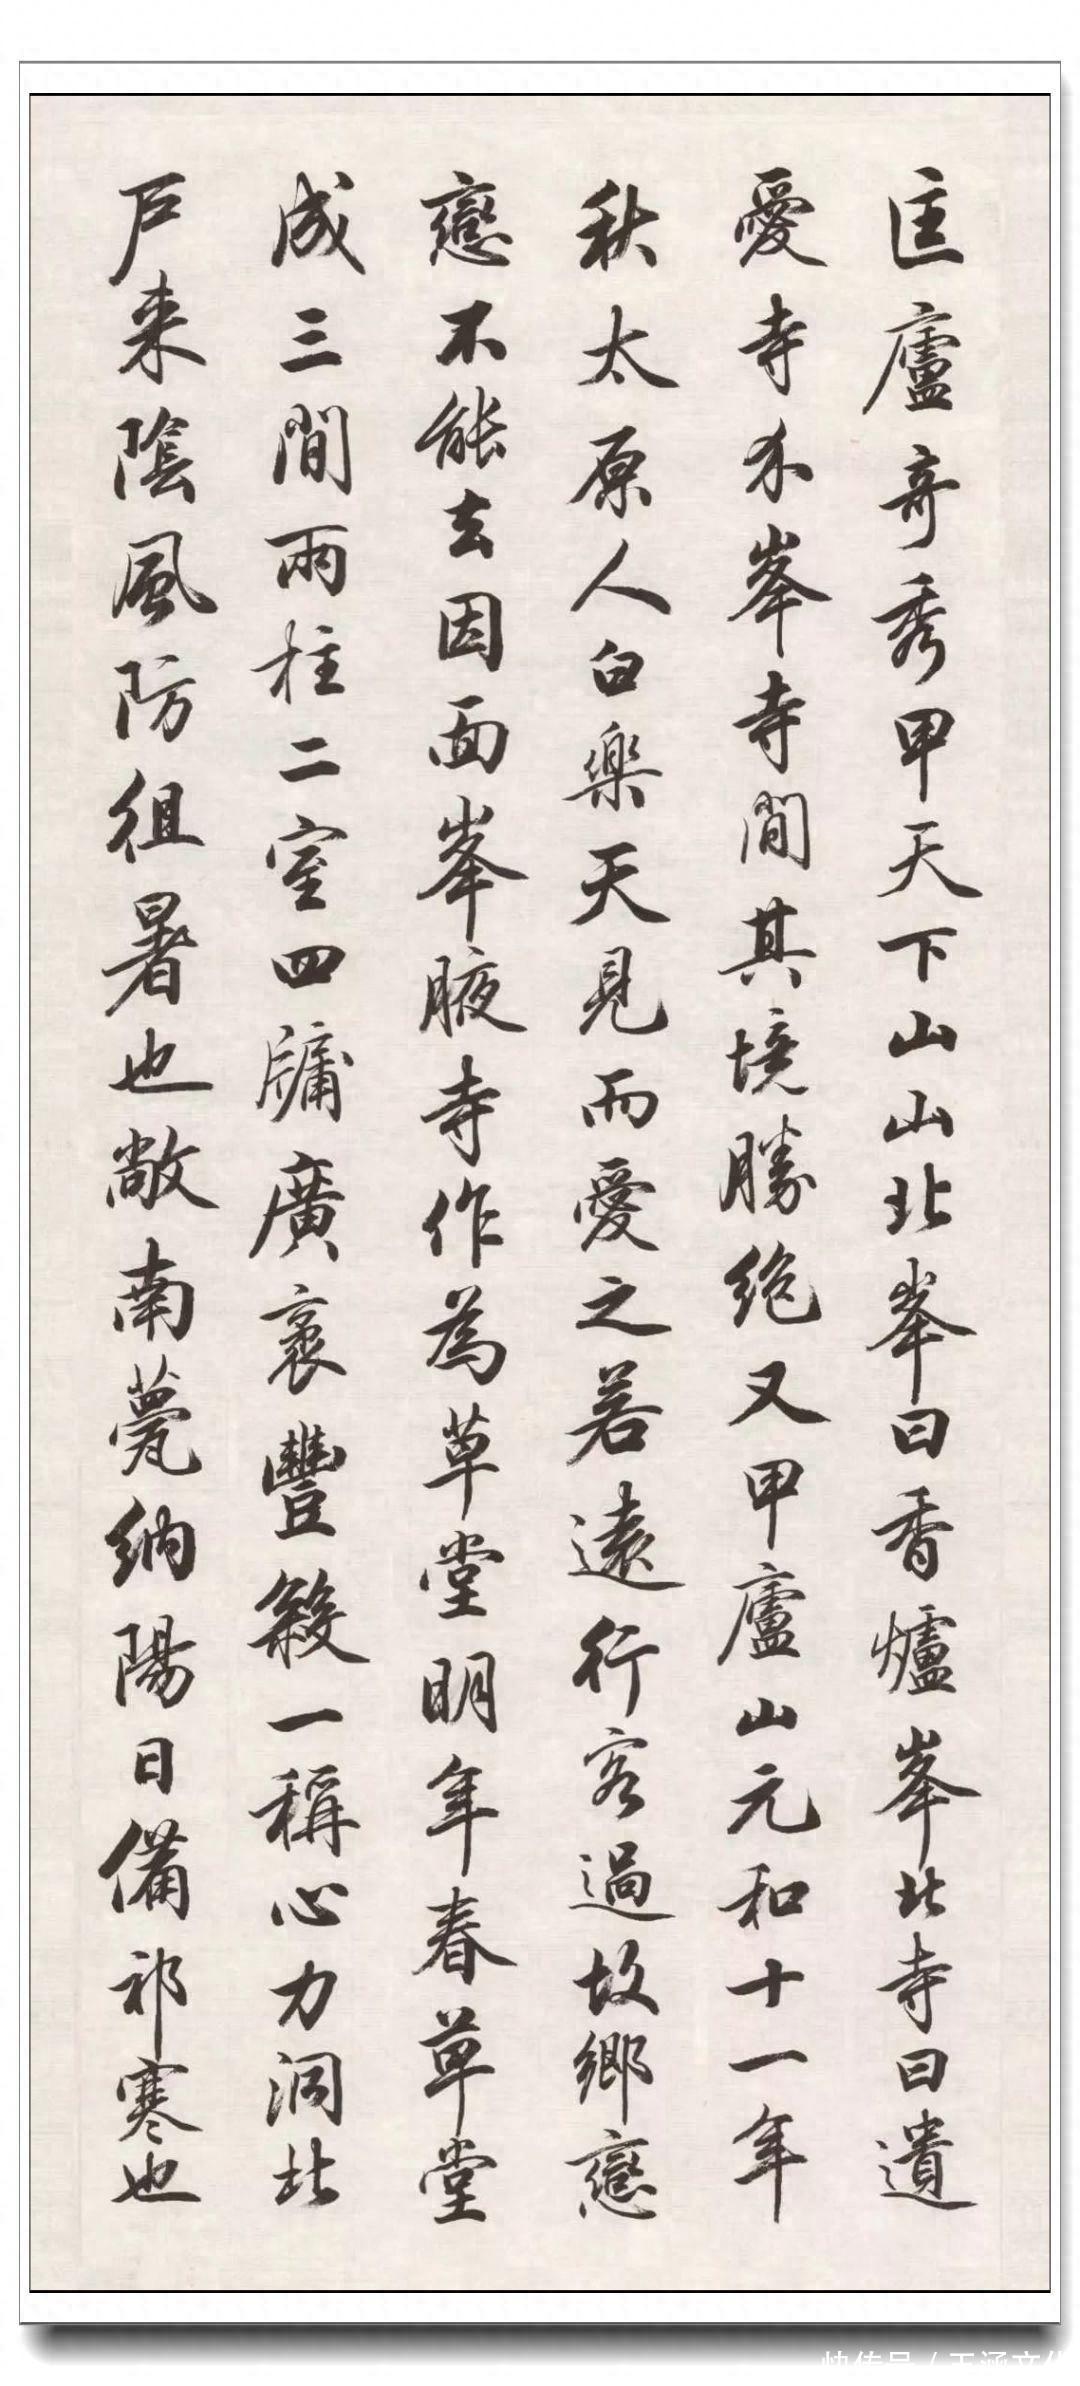 匡廬奇秀甲天下山山北峯曰香爐峯北寺曰遺
愛寺介峯寺間其境勝絶又甲廬山元和十一年
秋太原人白樂天見而愛之若遠行客過故鄉戀
戀不能去因面峯腋寺作為草堂明年春草堂
成三間兩柱二室四牖廣袤豐殺一稱心力洞北
戶来陰風防徂暑也敞南甍納陽日備祁寒也
快传号/玉涵文化